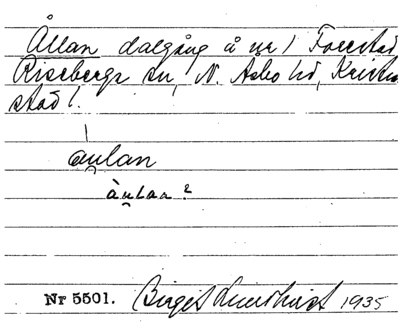 Ållan dalgång å nr 1 Forestad
Riseberga sn, N. Åsbo hd, Kristian
stad l.
àu̯lan
àu̯lan ?
Nr 5501. Birgit Lundkvist 1935